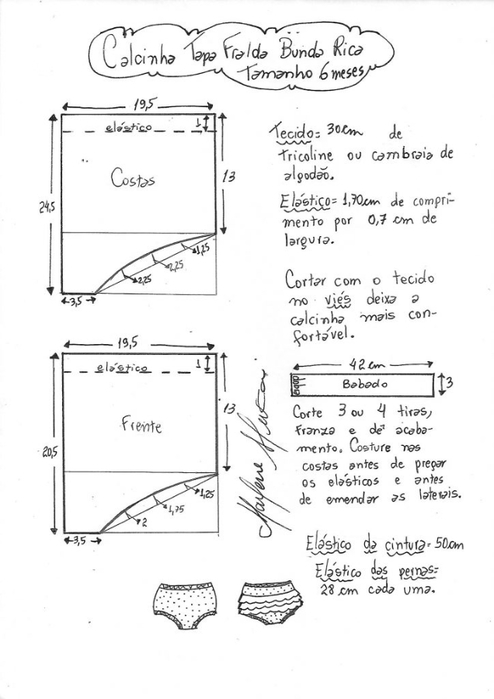 Calcinha Tapa Fralda Bunda Rica
Tamanho 6 meses
19,5
elástico
1
Costas
13
24,5
1,25
2,25
2,25
3,5
Tecido= 30cm de
tricoline ou cambraia de
algodão.
Elástico= 1,70cm de compri-
mento por 0,7 cm de
largura.
Cortar com o tecido
no viés deixa a
calcinha mais con-
fortável.
19,5
elástico
1
Frente
13
20,5
1,25
1,75
2
3,5
42 cm
Babado
3
Corte 3 ou 4 tiras,
franza e dê acaba-
mento. Costure nas
costas antes de pregar
os elásticos e antes
de emendar as laterais.
Marlene Mukai
Elástico da cintura= 50cm
Elástico das pernas=
28 cm cada uma.